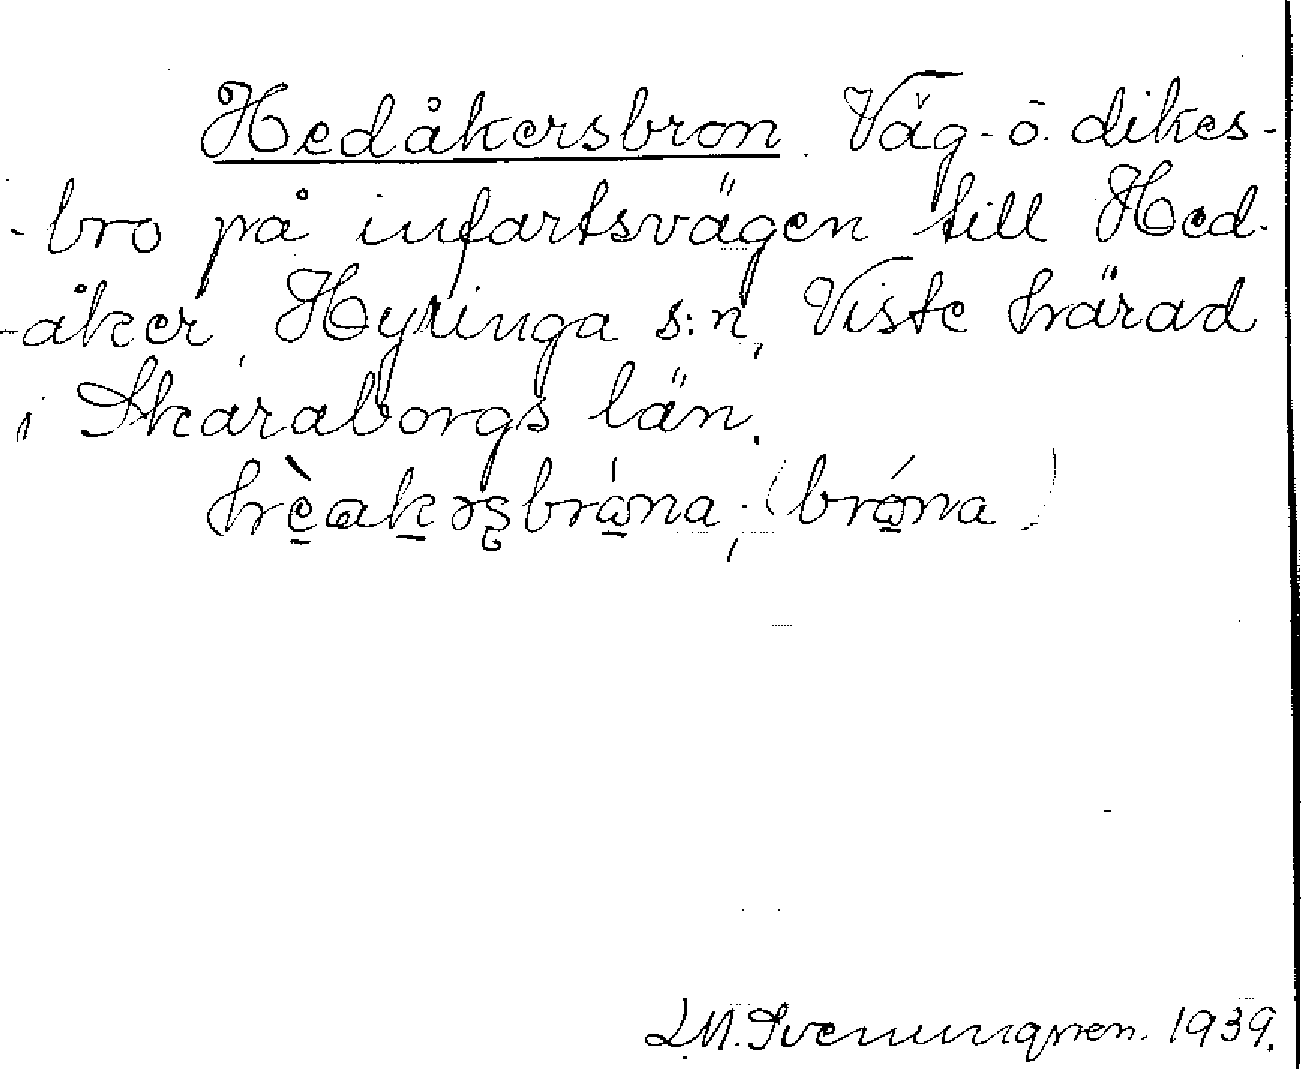 Hedåkersbron. Väg- o. dikes-
-bro på infartsvägen till Hed-
-åker, Hyringa s:n, Viste härad
i Skaraborgs län.
(bróna)
L.M. Svenungsson. 1939.